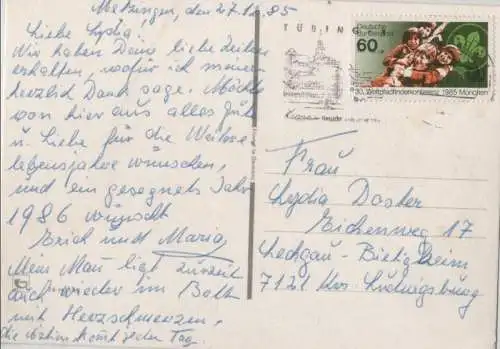 Metzingen, den 27.12.85
Liebe Lydia
Wir haben Deine liebe Zeilen
erhalten, wofür ich meinen
herzlich Dank sage. Möchte
von hier aus alles Gute
u. Liebe für die Weitere
Lebensjahre wünschen,
und ein gesegnets Jahr
1986 wünscht
Erich und Maria
Mein Man liegt zurzeit
auch wieder im Bett
mit Herzschmerzen,
die kommt jeden Tag.
TÜBIN
Deutsche
Bundespost
60
30. Weltpfadfinderkonferenz 1985 München
Frau
Lydia Doster
Eichenweg 17
Lechgau-Bietigheim
7121 Krs Ludwigsburg